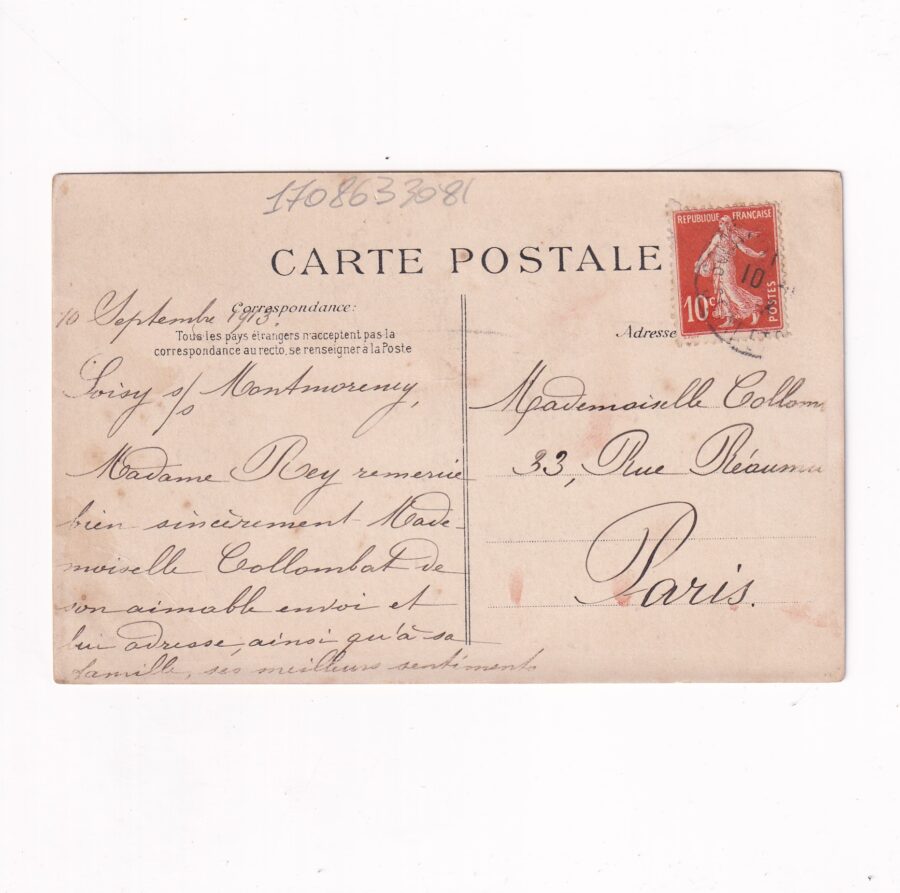 1708633081
CARTE POSTALE
REPUBLIQUE FRANÇAISE
10c
POSTES
10
Correspondance:
10 Septembre 1913.
Tous les pays étrangers n'acceptent pas la
correspondance au recto, se renseigner à la Poste
Soisy s/s Montmorency,
Madame Rey remercie
bien sincèrement Made-
moiselle Collombat de
son aimable envoi et
lui adresse, ainsi qu'à sa
famille, ses meilleurs sentiments
Adresse
Mademoiselle Collom
33, Rue Réaumu
Paris.